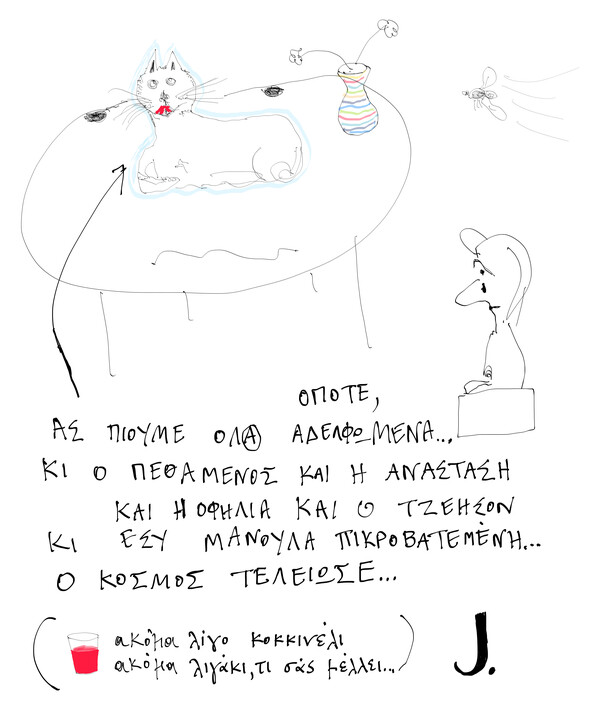 ΟΠΟΤΕ,
ΑΣ ΠΙΟΥΜΕ ΟΛΑ ΑΔΕΛΦΩΜΕΝΑ...
ΚΙ Ο ΠΕΘΑΜΕΝΟΣ ΚΑΙ Η ΑΝΑΣΤΑΣΗ
ΚΑΙ Η ΟΦΗΛΙΑ ΚΑΙ Ο ΤΖΕΗΣΟΝ
ΚΙ ΕΣΥ ΜΑΝΟΥΛΑ ΠΙΚΡΟΒΑΤΕΜΕΝΗ...
Ο ΚΟΣΜΟΣ ΤΕΛΕΙΩΣΕ...
(ακόμα λίγο κοκκινέλι
ακόμα λιγάκι, τι σάς μέλλει...)
J.